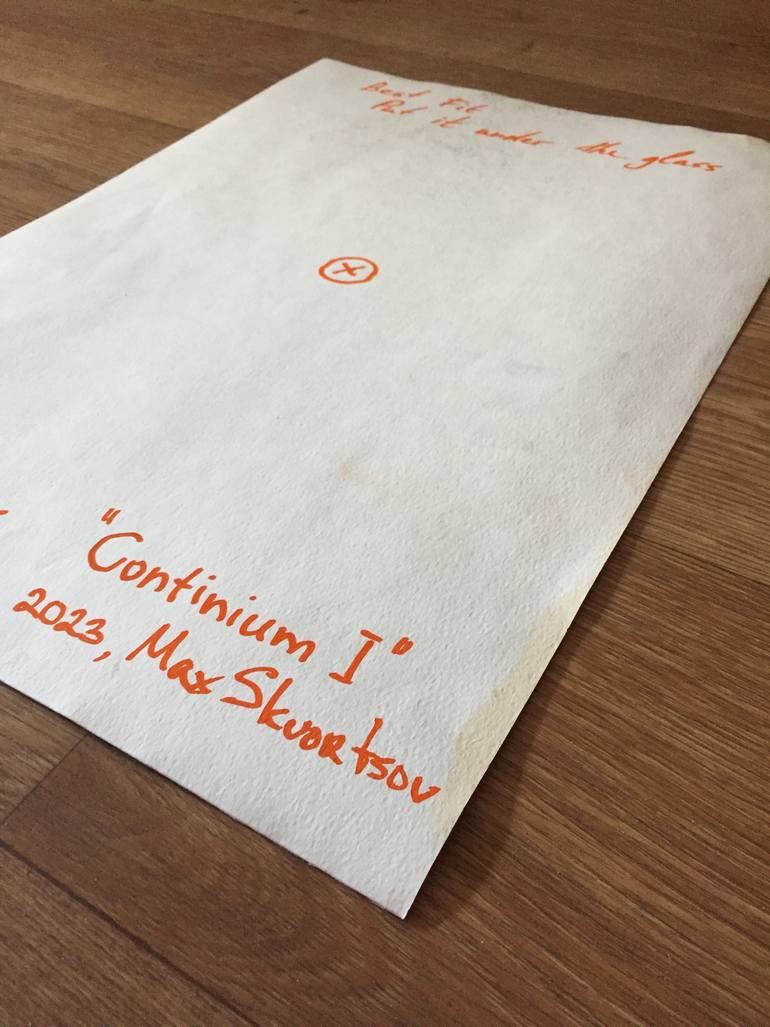 Best Fit
Put it under the glass
X
"Continium I"
2023, Max Skvortsov